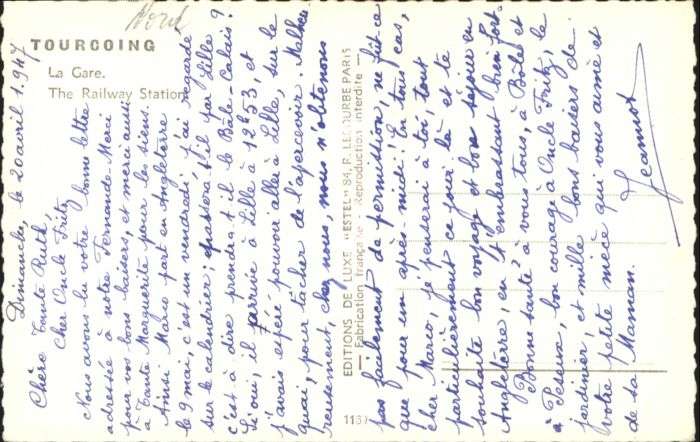 Nord
TOURCOING
La Gare.
The Railway Station
EDITIONS DE LUXE "ESTEL" 84, R. LECOURBE PARIS
Fabrication française - Reproduction interdite
Dimanche, le 20 avril 1.947
Chère Tante Ruth,
Cher Oncle Fritz,
Nous avons lu votre bonne lettre
adressée à notre Fernande. Merci
pour vos bons baisers, et merci aussi
à Tante Marguerite pour les siens.
Ainsi Marco part en Angleterre
le 9 mai, c'est un vendredi, j'ai regardé
sur le calendrier; passera-t-il par Lille
c'est à dire prendra-t-il le Bâle-Calais?
Si oui, il arrive à Lille à 12h53, et
j'avais espéré pouvoir aller à Lille, sur le
quai, pour tâcher de l'apercevoir. Malheu
reusement, chez nous, nous n'obtenons
pas facilement de permission, ne fût-ce
que pour un après-midi. En tous cas,
cher Marco, je penserai à toi, tout
particulièrement ce jour là et te
souhaite bon voyage et bon séjour en
Angleterre, en t'embrassant bien fort.
Bonne santé à vous tous, à Bôle et
à Peseux, bon courage à Oncle Fritz, le
jardinier, et mille bons baisers de
votre petite nièce qui vous aime et
de sa Maman.
Jeannot